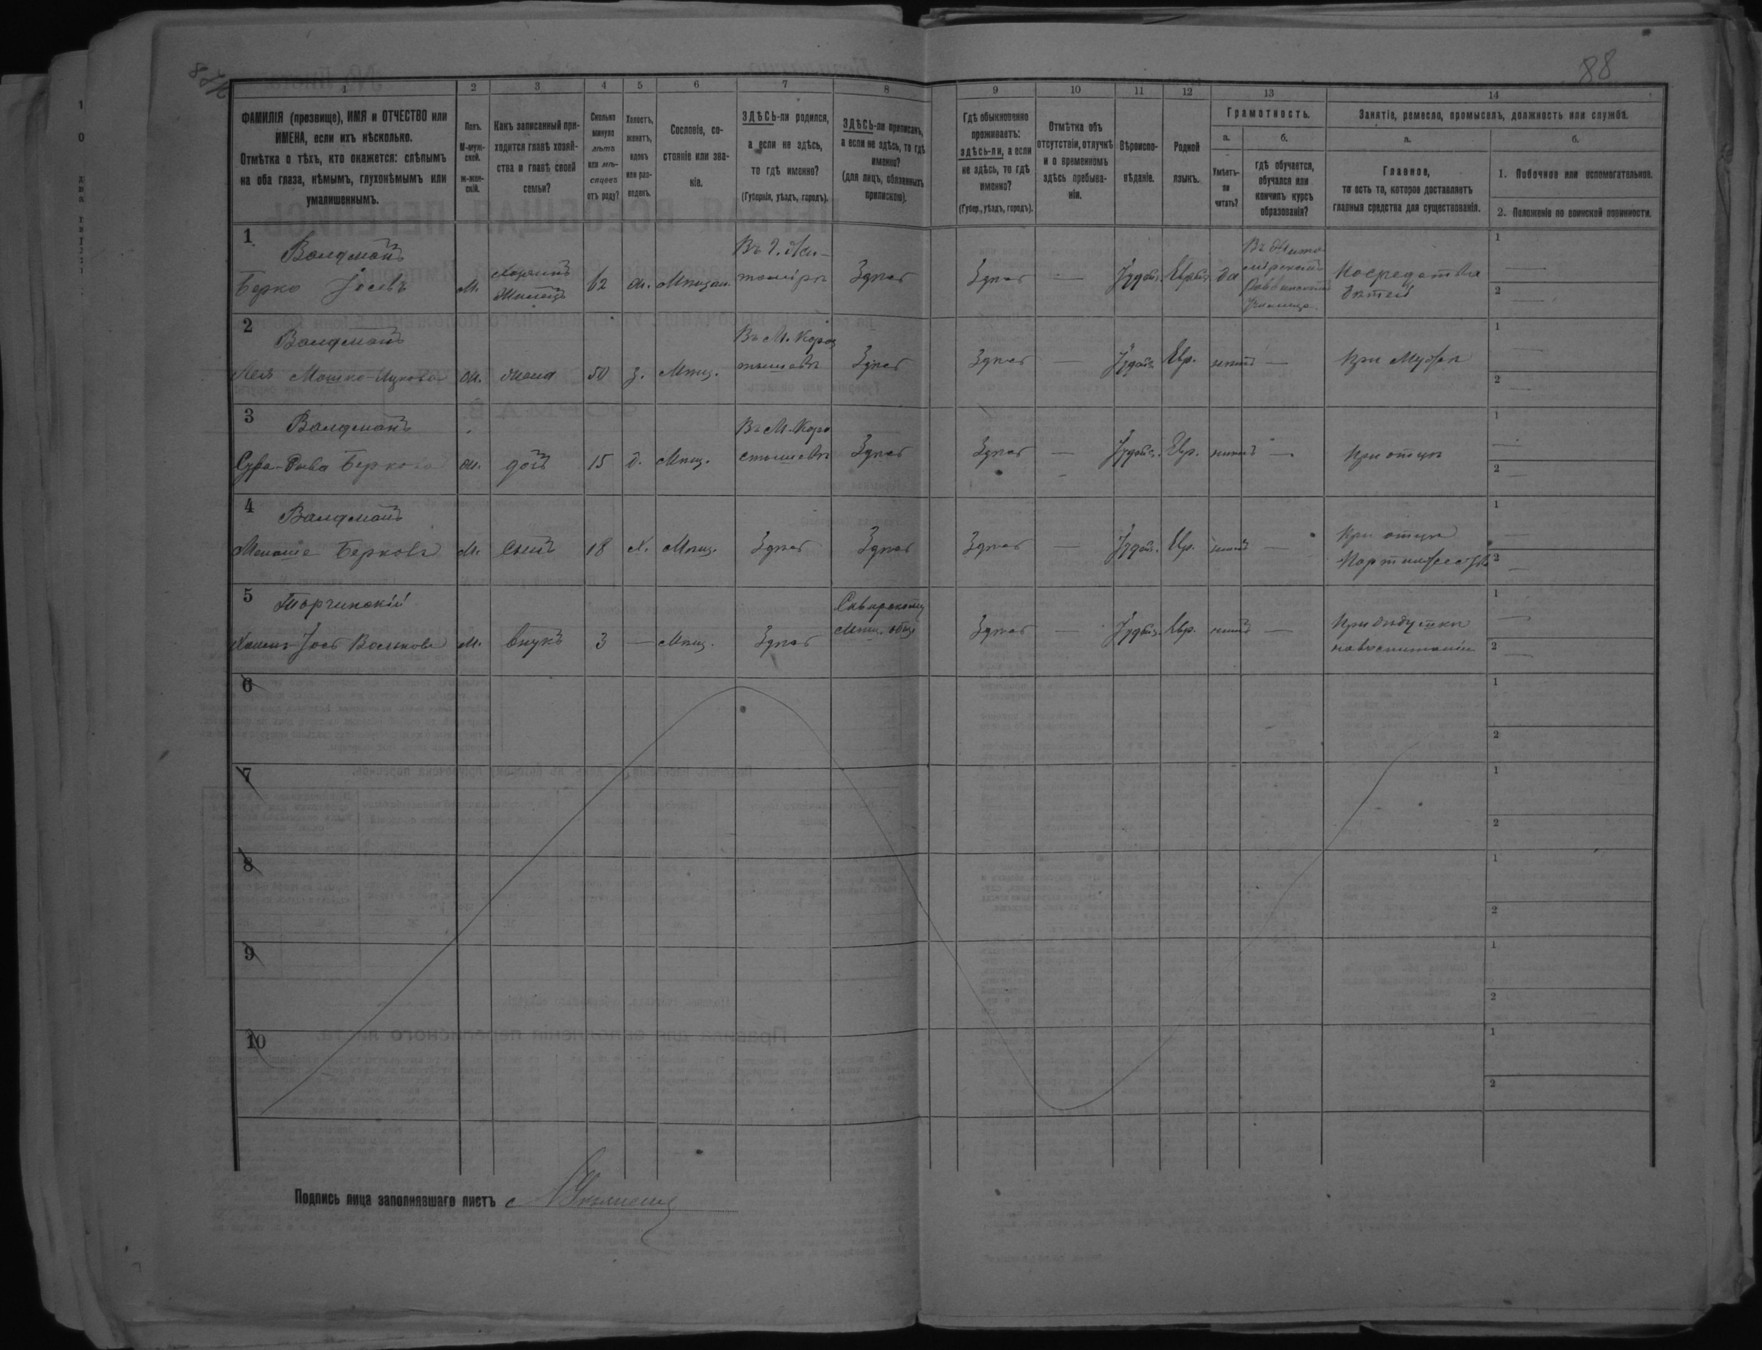 88
1 2 3 4 5 6 7 8 9 10 11 12 13 14
ФАМИЛІЯ (прозвище), ИМЯ и ОТЧЕСТВО или ИМЕНА, если ихъ нѣсколько.
Отмѣтка о тѣхъ, кто окажется: слѣпымъ на оба глаза, нѣмымъ, глухонѣмымъ или умалишеннымъ.
Полъ.
М-муж-
ской.
ж-жен-
скій.
Какъ записанный при-
ходится главѣ хозяй-
ства и главѣ своей
семьи?
Сколько
минуло
лѣтъ
или мѣ-
сяцевъ
отъ роду?
Холостъ,
женатъ,
вдовъ
или раз-
веденъ.
Сословіе, со-
стояніе или зва-
ніе.
ЗДѢСЬ-ли родился,
а если не здѣсь,
то гдѣ именно?
(Губернія, уѣздъ, городъ).
ЗДѢСЬ-ли приписанъ,
а если не здѣсь, то гдѣ
именно?
(для лицъ, обязанныхъ
припискою).
Гдѣ обыкновенно
проживаетъ:
здѣсь-ли, а если
не здѣсь, то гдѣ
именно?
(Губер., уѣздъ, городъ).
Отмѣтка объ
отсутствіи, отлучкѣ
и о временномъ
здѣсь пребыва-
ніи.
Вѣроиспо-
вѣданіе.
Родной
языкъ.
Грамотность.
а.
Умѣетъ-
ли
читать?
б.
гдѣ обучается,
обучался или
кончилъ курсъ
образованія?
Занятіе, ремесло, промыселъ, должность или служба.
а.
Главное,
то есть то, которое доставляетъ
главныя средства для существованія.
б.
1. Побочное или вспомогательное.
2. Положеніе по воинской повинности.
1
Валдманъ
Берко Іосевъ
м. Хозяинъ 62 ж. Мѣщан. Въ г. Жи-
томірѣ Здѣсь Здѣсь — Іудейс. Еврейс. да
Посредства
дѣтей
2
Валдманъ
Лея Мошко-Ицкова ж. жена 50 з. Мѣщ.
Въ М. Коро
стышевѣ Здѣсь Здѣсь — Іудейс. Евр. нѣтъ — При мужѣ
3
Валдманъ
Сура-Рива Беркова ж. дочь 15 д. Мѣщ.
Въ М. Коро
стышевѣ Здѣсь Здѣсь — Іудейс. Евр. нѣтъ — При отцѣ
4
Валдманъ
Менаше Берковъ м. сынъ 18 х. Мѣщ. Здѣсь Здѣсь Здѣсь — Іудейс. Евр. нѣтъ —
При отцѣ
5
Торчинскій
Іось Вольковъ м. внукъ 3 — Мѣщ. Здѣсь
Сквирскому
мѣщ. общ. Здѣсь — Іудейс. Евр. нѣтъ —
При дѣдушкѣ
на воспитаніи
6
7
8
9
10
Подпись лица заполнявшаго листъ